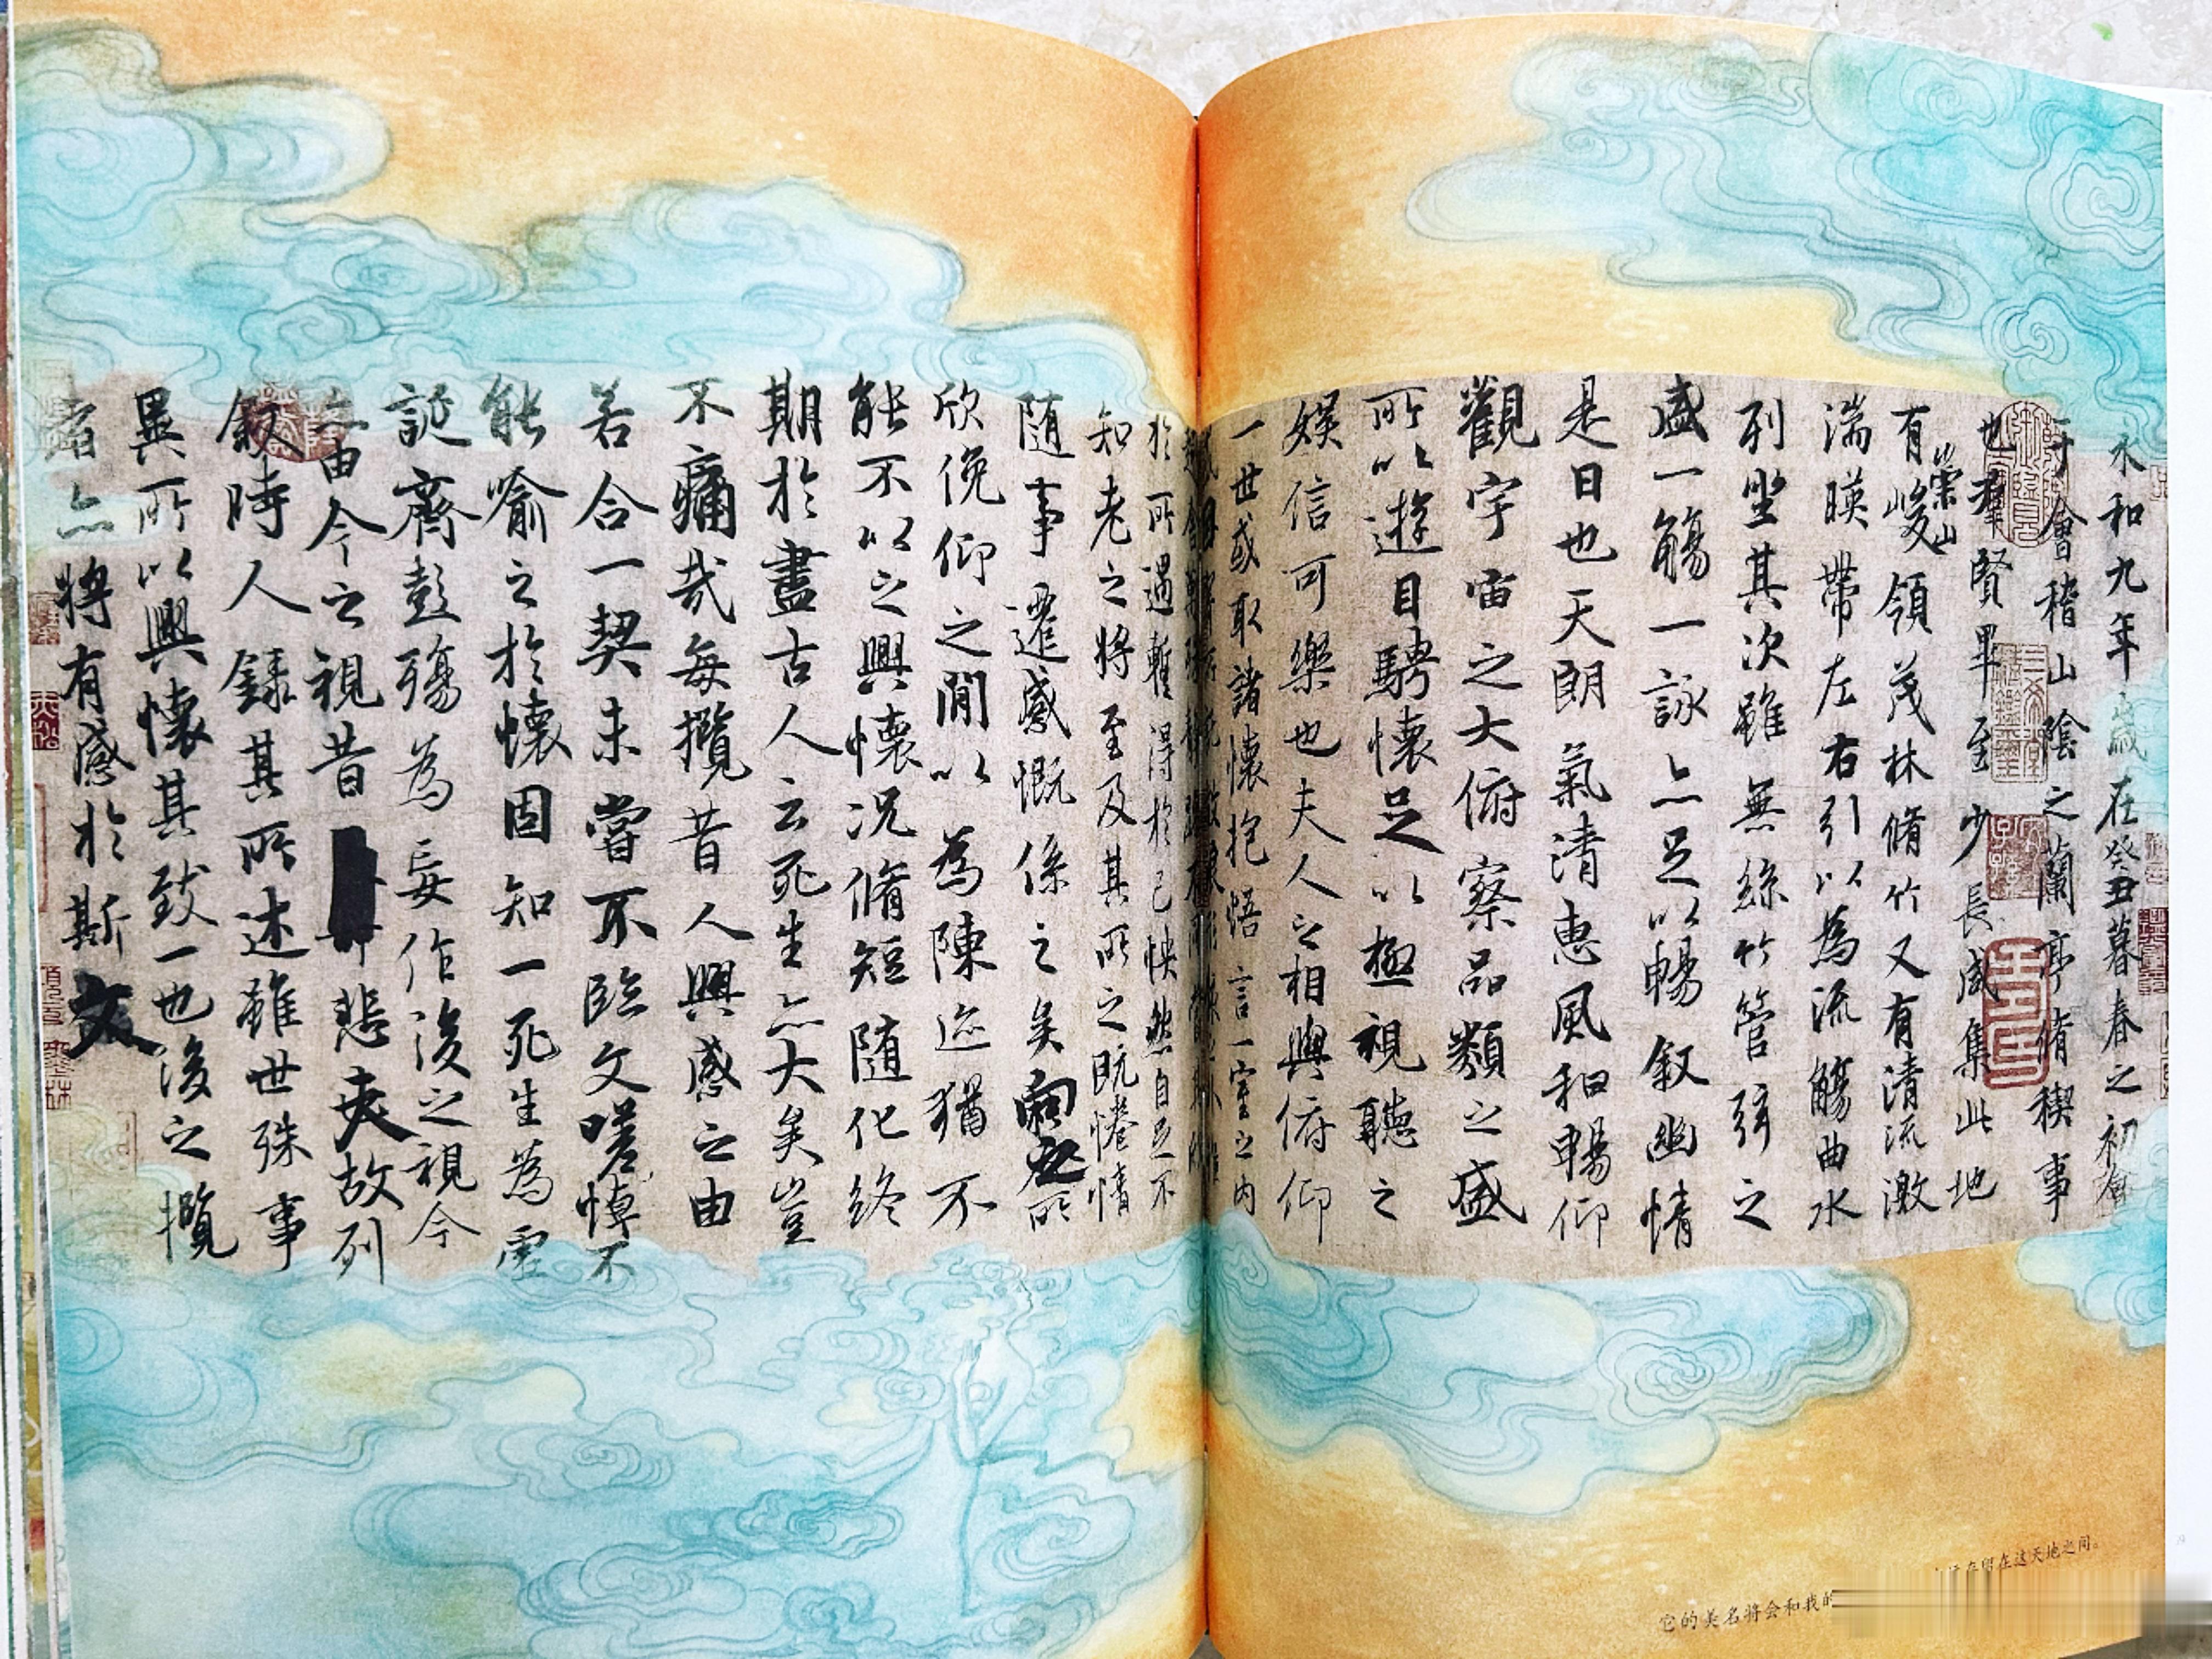 永和九年歲在癸丑暮春之初會
于會稽山陰之蘭亭脩稧事
也羣賢畢至少長咸集此地
有崇山峻領茂林脩竹又有清流激
湍暎帶左右引以為流觴曲水
列坐其次雖無絲竹管弦之
盛一觴一詠亦足以暢敘幽情
是日也天朗氣清惠風和暢仰
觀宇宙之大俯察品類之盛
所以遊目騁懷足以極視聽之
娛信可樂也夫人之相與俯仰
一世或取諸懷抱悟言一室之内
於所遇暫得於己怏然自足不
知老之將至及其所之既惓情
隨事遷感慨係之矣向之所
欣俛仰之閒以為陳迹猶不
能不以之興懷況脩短隨化終
期於盡古人云死生亦大矣豈
不痛哉每攬昔人興感之由
若合一契未嘗不臨文嗟悼不
能喻之於懷固知一死生為虛
誕齊彭殤為妄作後之視今
亦由今之視昔悲夫故列
敘時人錄其所述雖世殊事
異所以興懷其致一也後之攬
者亦將有感於斯文
在这天地之间。
它的美名将会和我的